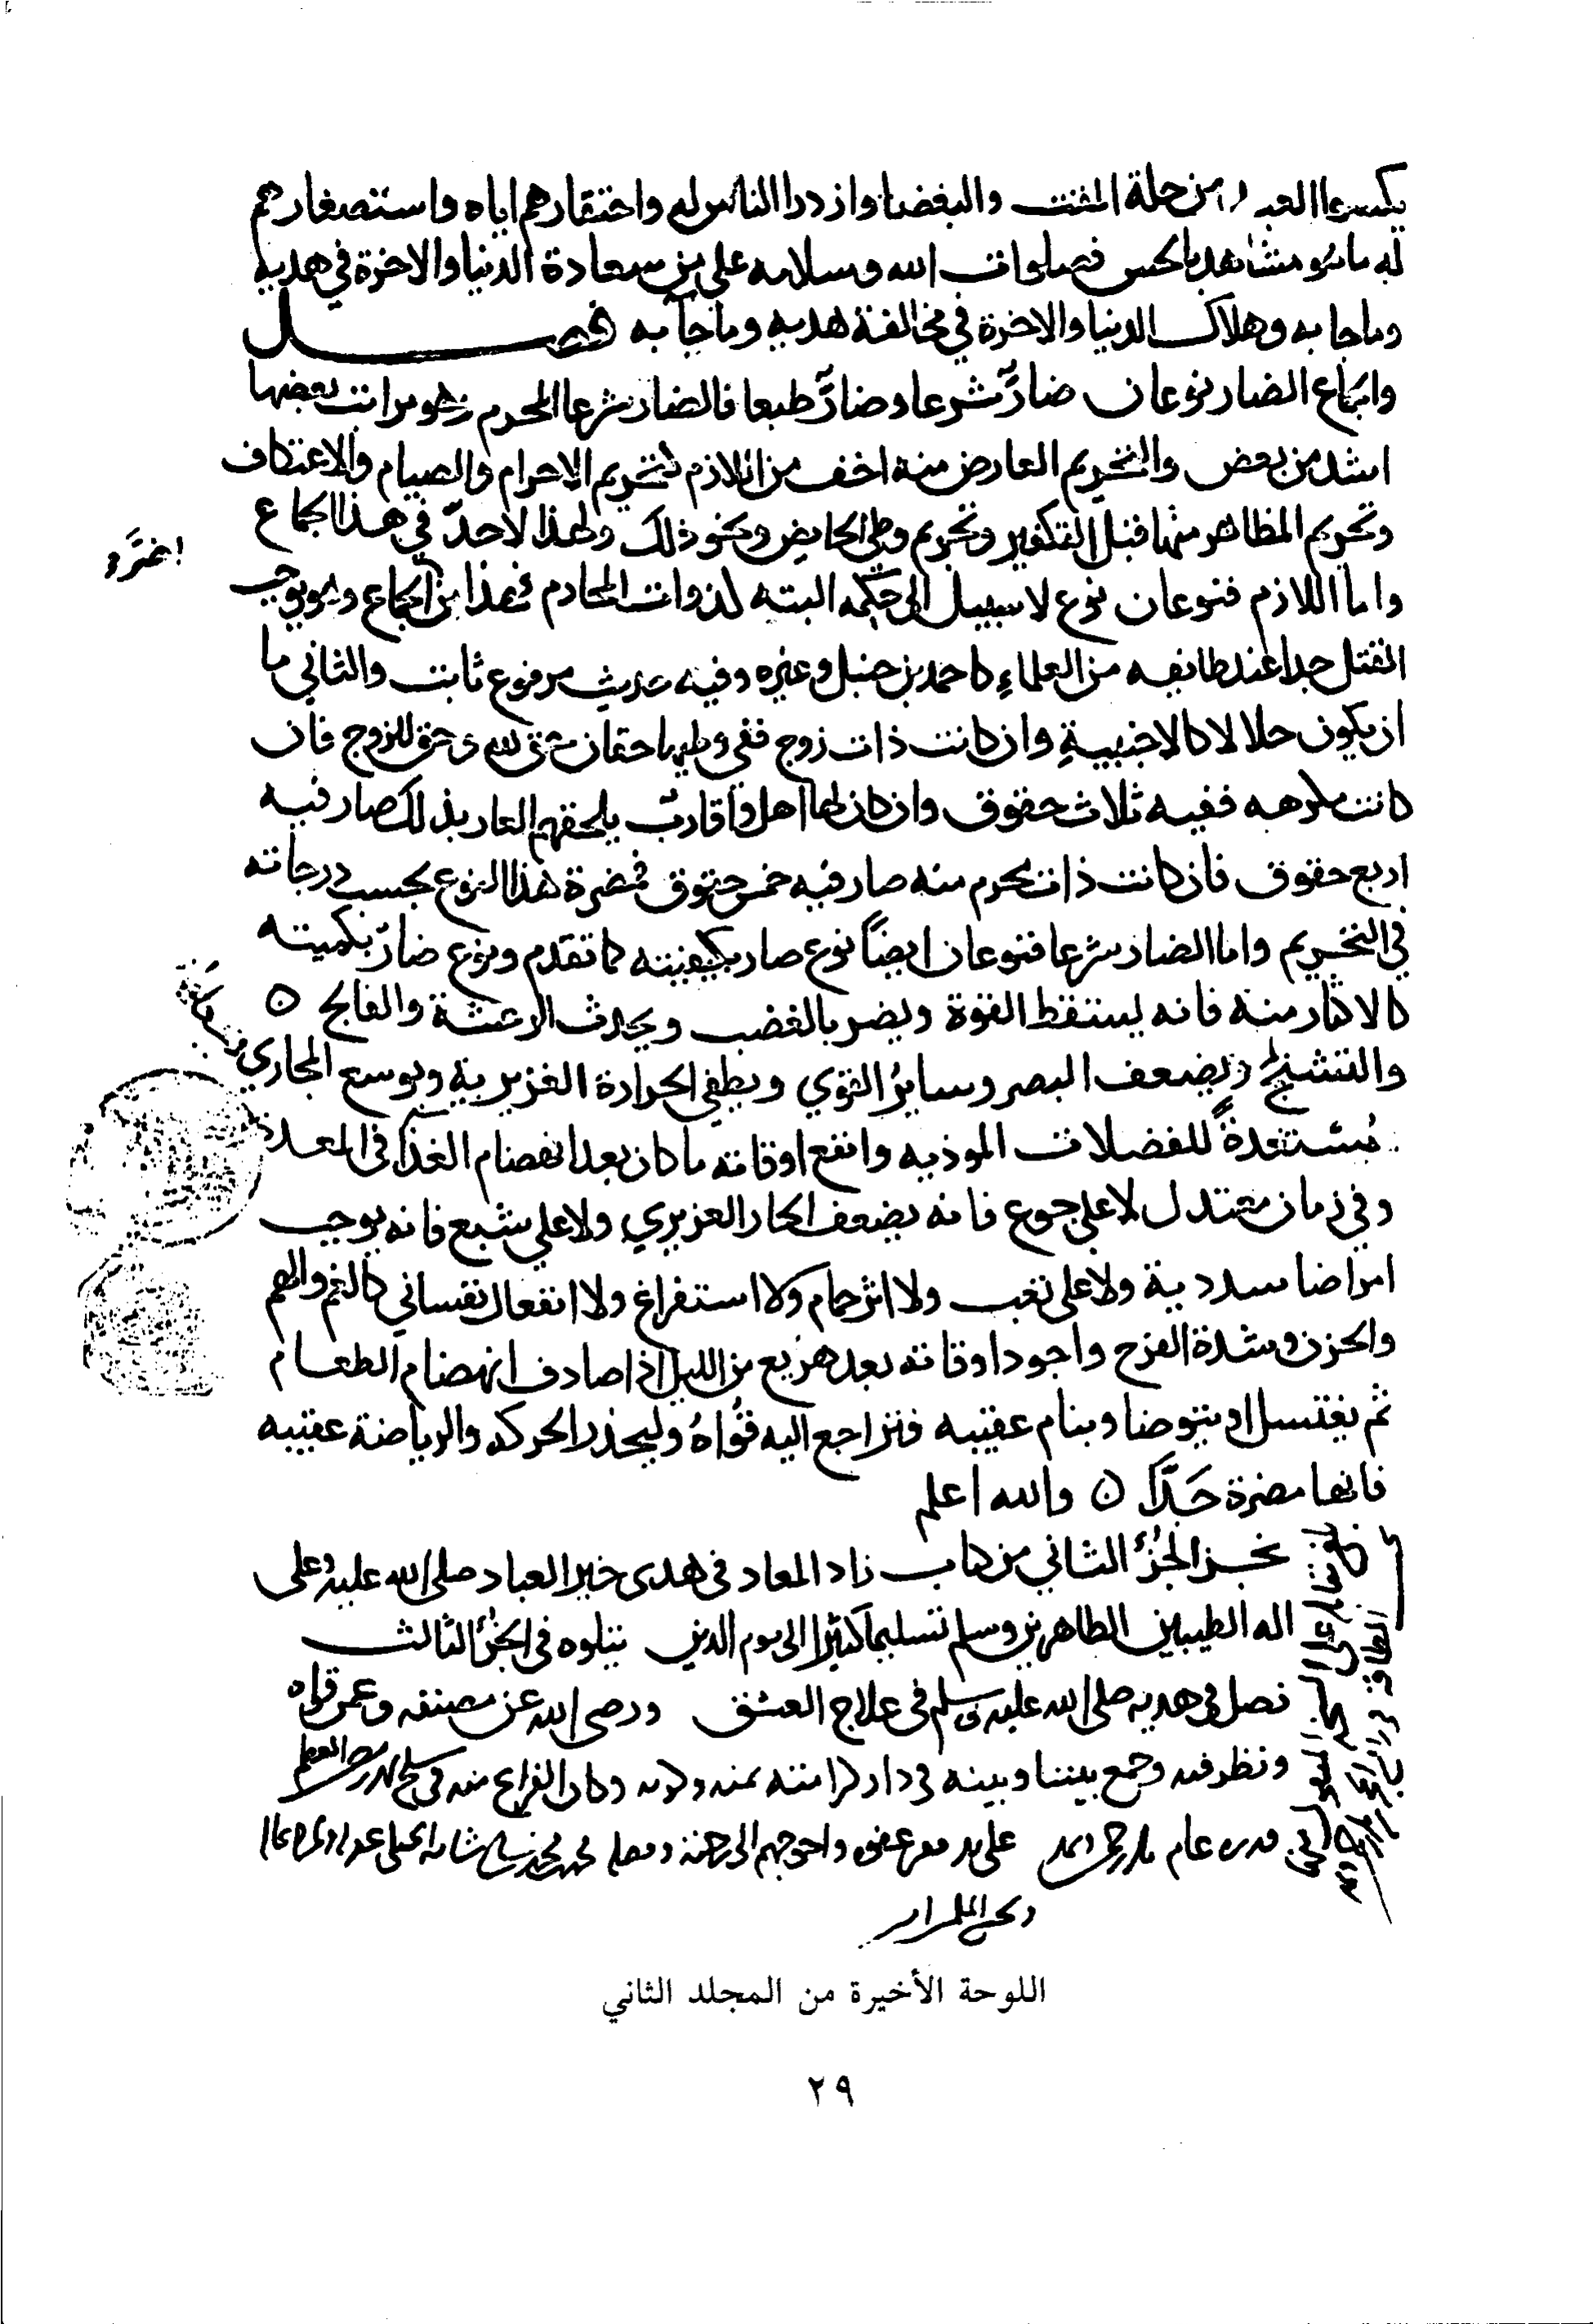 يكسوها العبد من حلة المقت والبغضا وازدرا الناس له واحتقارهم اياه واستصغارهم
له ما هو مشاهد بالحس فصلوات الله وسلامه على من سعادة الدنيا والاخرة في هديه
وما جا به وهلاك الدنيا والاخرة في مخالفة هديه وما جآ به فصل
والجماع الضار نوعان ضارّ شرعا وضارّ طبعا فالضار شرعا المحرم وهو مراتب بعضها
اشد من بعض والتحريم العارض منه اخف من اللازم كتحريم الاحرام والصيام والاعتكاف
وتحريم المظاهر منها قبل التكفير وتحريم وطي الحايض ونحو ذلك ولهذا لا حدّ في هذا الجماع
واما اللازم فنوعان نوع لا سبيل الى حله البته كذوات المحارم فهذا من اضر الجماع وهو يوجب
القتل حدا عند طايفه من العلماء كاحمد بن حنبل وغيره وفيه حديث مرفوع ثابت والثاني ما
ان يكون حلالا كالاجنبية وان كانت ذات زوج ففي وطيها حقان حق لله وحق للزوج فان
كانت مكرهه ففيه ثلاث حقوق وان كان لها اهل واقارب يلحقهم العار بذلك صار فيه
اربع حقوق فان كانت ذات محرم منه صار فيه خمس حقوق فمضرة هذا النوع بحسب درجاته
في التحريم واما الضار شرعا فنوعان ايضًا نوع ضار بكيفيته كما تقدم ونوع ضارّ بكميته
كالاكثار منه فانه يسقط القوة ويضر بالغضب ويحدث الرعشة والفالج ٥
والتشنج ويضعف البصر وساير القوي ويطفي الحرارة الغزيرية ويوسع المجاري
مُستعدةً للفضلات الموذيه وانفع اوقاته ما كان بعد انهضام الغذآ في المعدة
وفي زمان معتدل لا على جوع فانه يضعف الحار العزيري ولا على شبع فانه يوجب
امراضا سددية ولا على تعب ولا اثر حمام ولا استفراغ ولا انفعال نفساني كالغم والهم
والحزن وشدة الفرح واجود اوقاته بعد هزيع من الليل اذا صادف انهضام الطعام
ثم يغتسل او يتوضا وينام عقيبه فتراجع اليه قُواهُ وليحذر الحركه والرياضة عقيبه
فانها مضرة جَدًّا ٥ والله اعلم
نجز الجزء الثاني من كتاب زاد المعاد في هدى خير العباد صلى الله عليه وعلى
اله الطيبين الطاهرين وسلم تسليما كثيرا الى يوم الدين يتلوه في الجزء الثالث
فصل في هديه صلى الله عليه وسلم في علاج العشق ورضي الله عن مصنفه وعمن قراه
ونظر فيه وجمع بيننا وبينه في دار كرامته بمنه وكرمه وكان الفراغ منه في سلخ
على يد واحوجهم الى رحمته
اللوحة الأخيرة من المجلد الثاني
٢٩